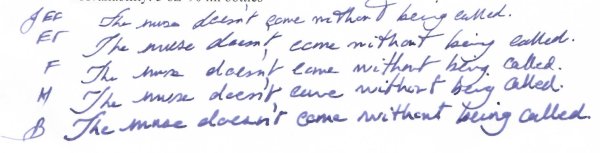 EF The muse doesn't come without being called.
EF The muse doesn't, come without being called.
F The muse doesn't come without being called.
M The muse doesn't come without being called.
B The muse doesn't come without being called.